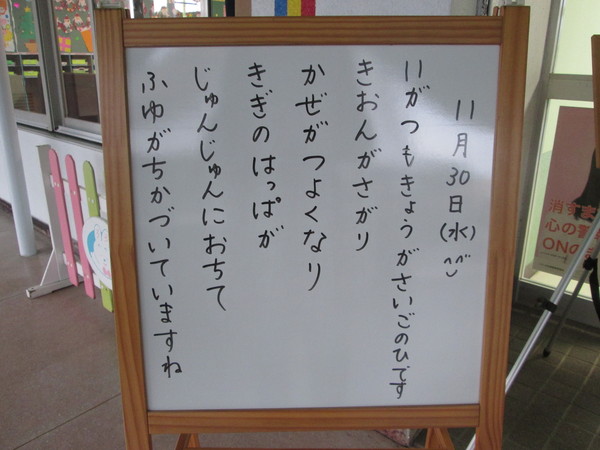 11月30日(水)^^
11がつもきょうがさいごのひです
きおんがさがり
かぜがつよくなり
きぎのはっぱが
じゅんじゅんにおちて
ふゆがちかづいていますね
消すま
心の警
ONの